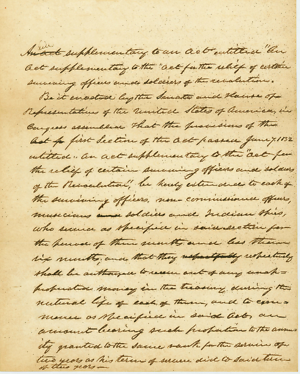 An Act supplementary to an Act entitled "An
Act supplementary to the "Act for the relief of certain
surviving officers and soldiers of the revolution.
Be it enacted by the Senate and House of
Representatives of the United States of America, in
Congress assembled That the provisions of the
first Section of the Act passed June 7 1832
entitled "An Act supplementary to the "Act for
the relief of certain surviving officers and soldiers
of the Revolution", be hereby extended to each of
the surviving officers, non-commissioned officers,
musicians soldiers and Indian spies,
who served as specified in said section for
the period of three months and less than
six months, and that they respectively
shall be authorized to receive out of any unap-
propriated money in the treasury during the
natural life of each of them, and to com-
mence as specified in said Act, an
amount bearing such proportion to the annu-
ity granted to the same rank for the service of
two years as his term of service did to said term
of two years—